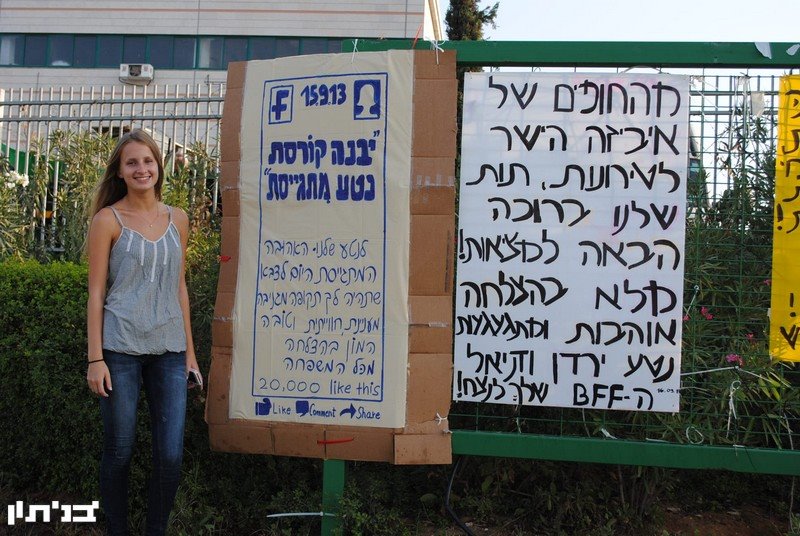 f 15.9.13
"יבנה קורסת
נטע מתגייסת"
לנטע שלנו האהובה
המתגייסת היום לצבא
שתהיה לך תקופה מגניבה
מעניינת, חווייתית וטובה
המון בהצלחה
מכל המשפחה
20,000 like this
Like Comment Share
מהחופים של
איביזה הישר
לטירונות, תות
שלנו ברוכה
הבאה למציאות!
מלא בהצלחה
אוהבות ומתגעגעות
נטע ירדן ודניאל
ה-BFF שלך לנצח!